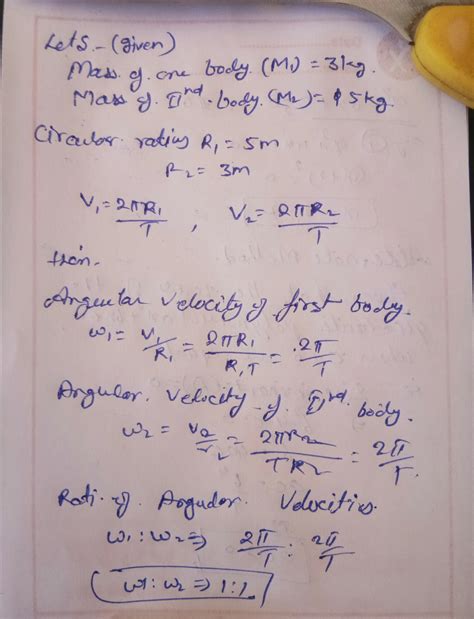 Lets - (given)
Mass of one body (M₁) = 3kg.
Mass of IInd body (M₂) = 5kg.
Circular ratius R₁ = 5m
R₂ = 3m
V₁ = 2πR₁/T , V₂ = 2πR₂/T
then.
Angular velocity of first body.
ω₁ = V₁/R₁ = 2πR₁/R₁T = 2π/T
Angular. Velocity of IInd body.
ω₂ = V₂/r₂ = 2πR₂/TR₂ = 2π/T.
Rati of Angular Velocities.
ω₁ : ω₂ ⇒ 2π/T : 2π/T
ω1 : ω₂ ⇒ 1:1